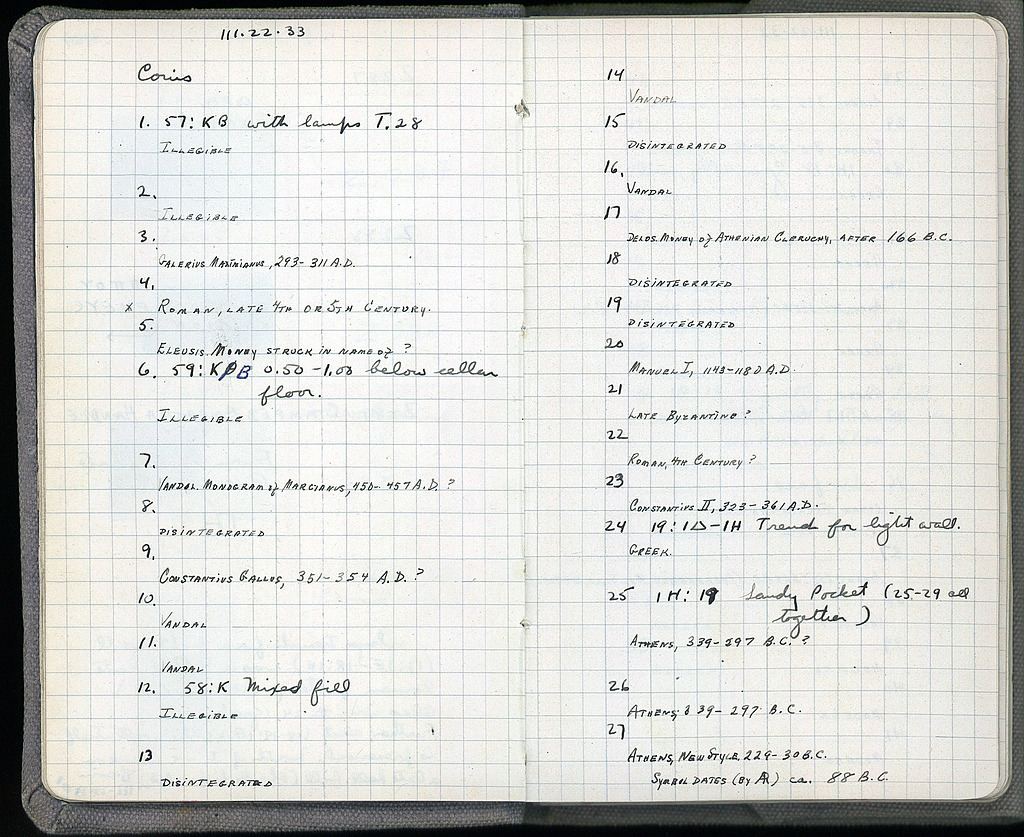 111.22.33
Coins
1. 57: KB with lamps T.28
ILLEGIBLE
2.
ILLEGIBLE
3.
GALERIUS MAXIMIANUS, 293-311 A.D.
4.
x ROMAN, LATE 4TH OR 5TH CENTURY.
5.
ELEUSIS. MONEY STRUCK IN NAME OF ?
6. 59: KB 0.50-1.00 below cellar
floor.
ILLEGIBLE
7.
VANDAL. MONOGRAM of MARCIANUS, 450-457 A.D. ?
8.
DISINTEGRATED
9.
CONSTANTIUS GALLUS, 351-354 A.D. ?
10.
VANDAL
11.
VANDAL
12. 58: K Mixed fill
ILLEGIBLE
13
DISINTEGRATED
14
VANDAL
15
DISINTEGRATED
16.
VANDAL
17
DELOS. MONEY of ATHENIAN CLERUCHY, AFTER 166 B.C.
18
DISINTEGRATED
19
DISINTEGRATED
20
MANUEL I, 1143-1180 A.D.
21
LATE BYZANTINE ?
22
ROMAN, 4TH CENTURY ?
23
CONSTANTIUS II, 323-361 A.D.
24 19: 1Δ-1H Trench for light wall.
GREEK.
25 1H: 19 Sandy Pocket (25-29 all
together)
ATHENS, 339-297 B.C. ?
26
ATHENS, 339-297 B.C.
27
ATHENS, NEW STYLE, 229-30 B.C.
SYMBOL DATES (BY AR) ca. 88 B.C.